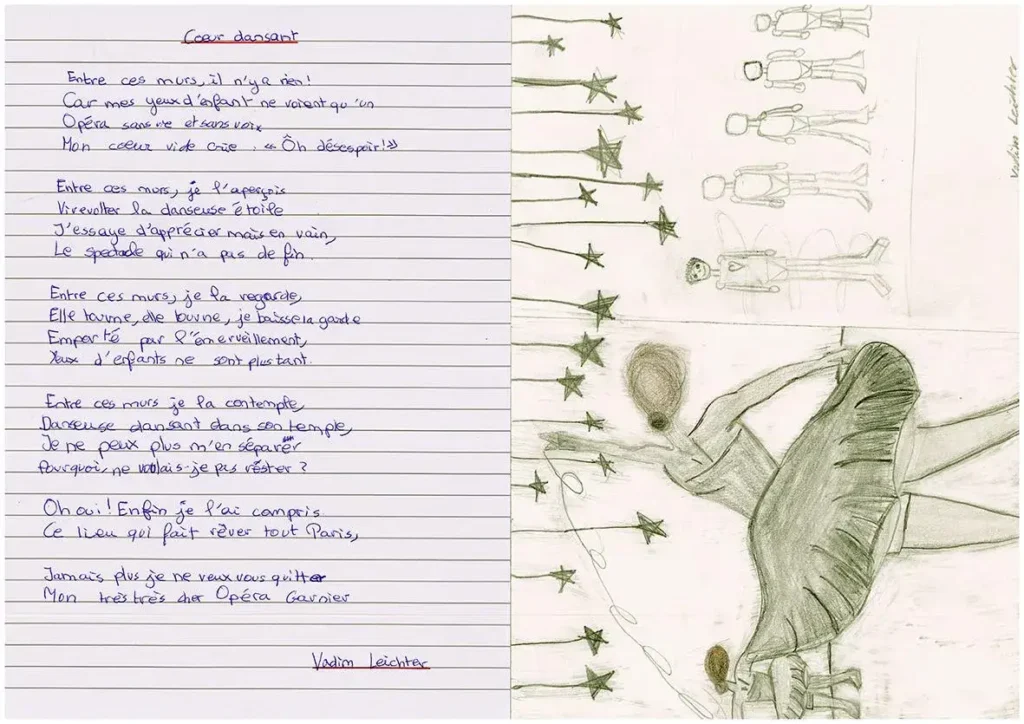 Cœur dansant
Entre ces murs, il n'y a rien !
Car mes yeux d'enfant ne voient qu'un
Opéra sans vie et sans voix
Mon coeur vide crie : « Ôh désespoir ! »
Entre ces murs, je l'aperçois
Virevolter la danseuse étoile
J'essaye d'apprécier mais en vain,
Le spectacle qui n'a pas de fin.
Entre ces murs, je la regarde,
Elle tourne, elle tourne, je baisse la garde
Emporté par l'émerveillement,
Yeux d'enfants ne sont plus tant.
Entre ces murs je la contemple,
Danseuse dansant dans son temple,
Je ne peux plus m'en séparer
Pourquoi, ne voulais-je pas rester ?
Oh oui ! Enfin je l'ai compris
Ce lieu qui fait rêver tout Paris,
Jamais plus je ne veux vous quitter
Mon très très cher Opéra Garnier
Vadim Leichter
Vadim Leichter